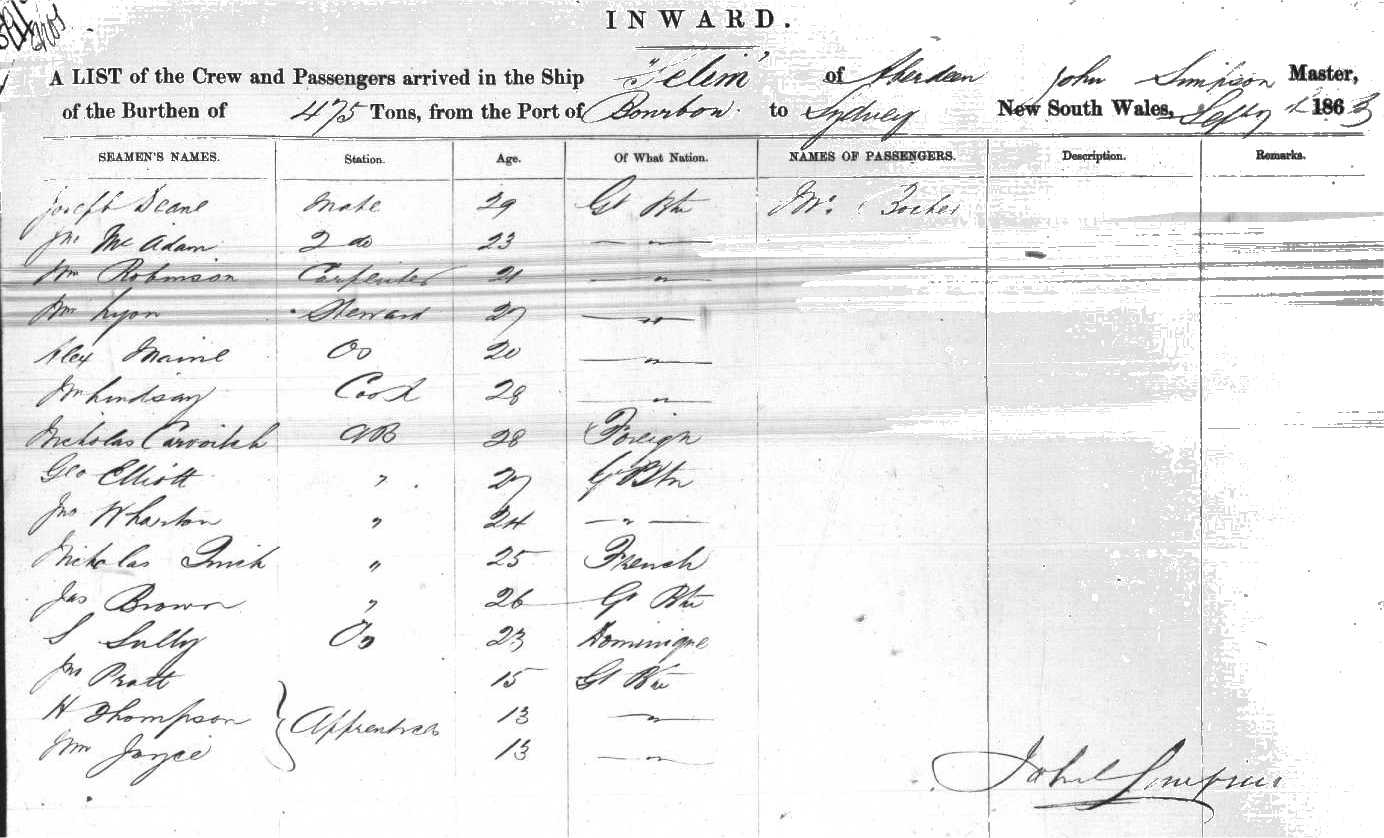 INWARD.
A LIST of the Crew and Passengers arrived in the Ship "Selim" of Aberdeen John Simpson Master,
of the Burthen of 475 Tons, from the Port of Bourbon. to Sydney New South Wales, 1863
SEAMEN'S NAMES. Station. Age. Of What Nation. NAMES OF PASSENGERS. Description. Remarks.
Joseph Deane Mate 29 Gt Btn Mr.
Jno McAdam 2 do 23 — " —
Wm Robinson Carpenter 21 — " —
Wm Lyon Steward 27 — " —
Alex Maine Os 20 — " —
Lindsay Cook 28 — " —
Nicholas Carvoitch AB 28 Foreign
Geo Elliott " 27 Gt Btn
Jno Wharton " 24 — " —
Nicholas " 25 French
Jas Brown " 26 Gt Btn
S Sully Os 23 Dominique
Jno Pratt 15 Gt Btn
H Thompson } Apprentices 13 — " —
Wm Joyce 13 — " —
John Simpson